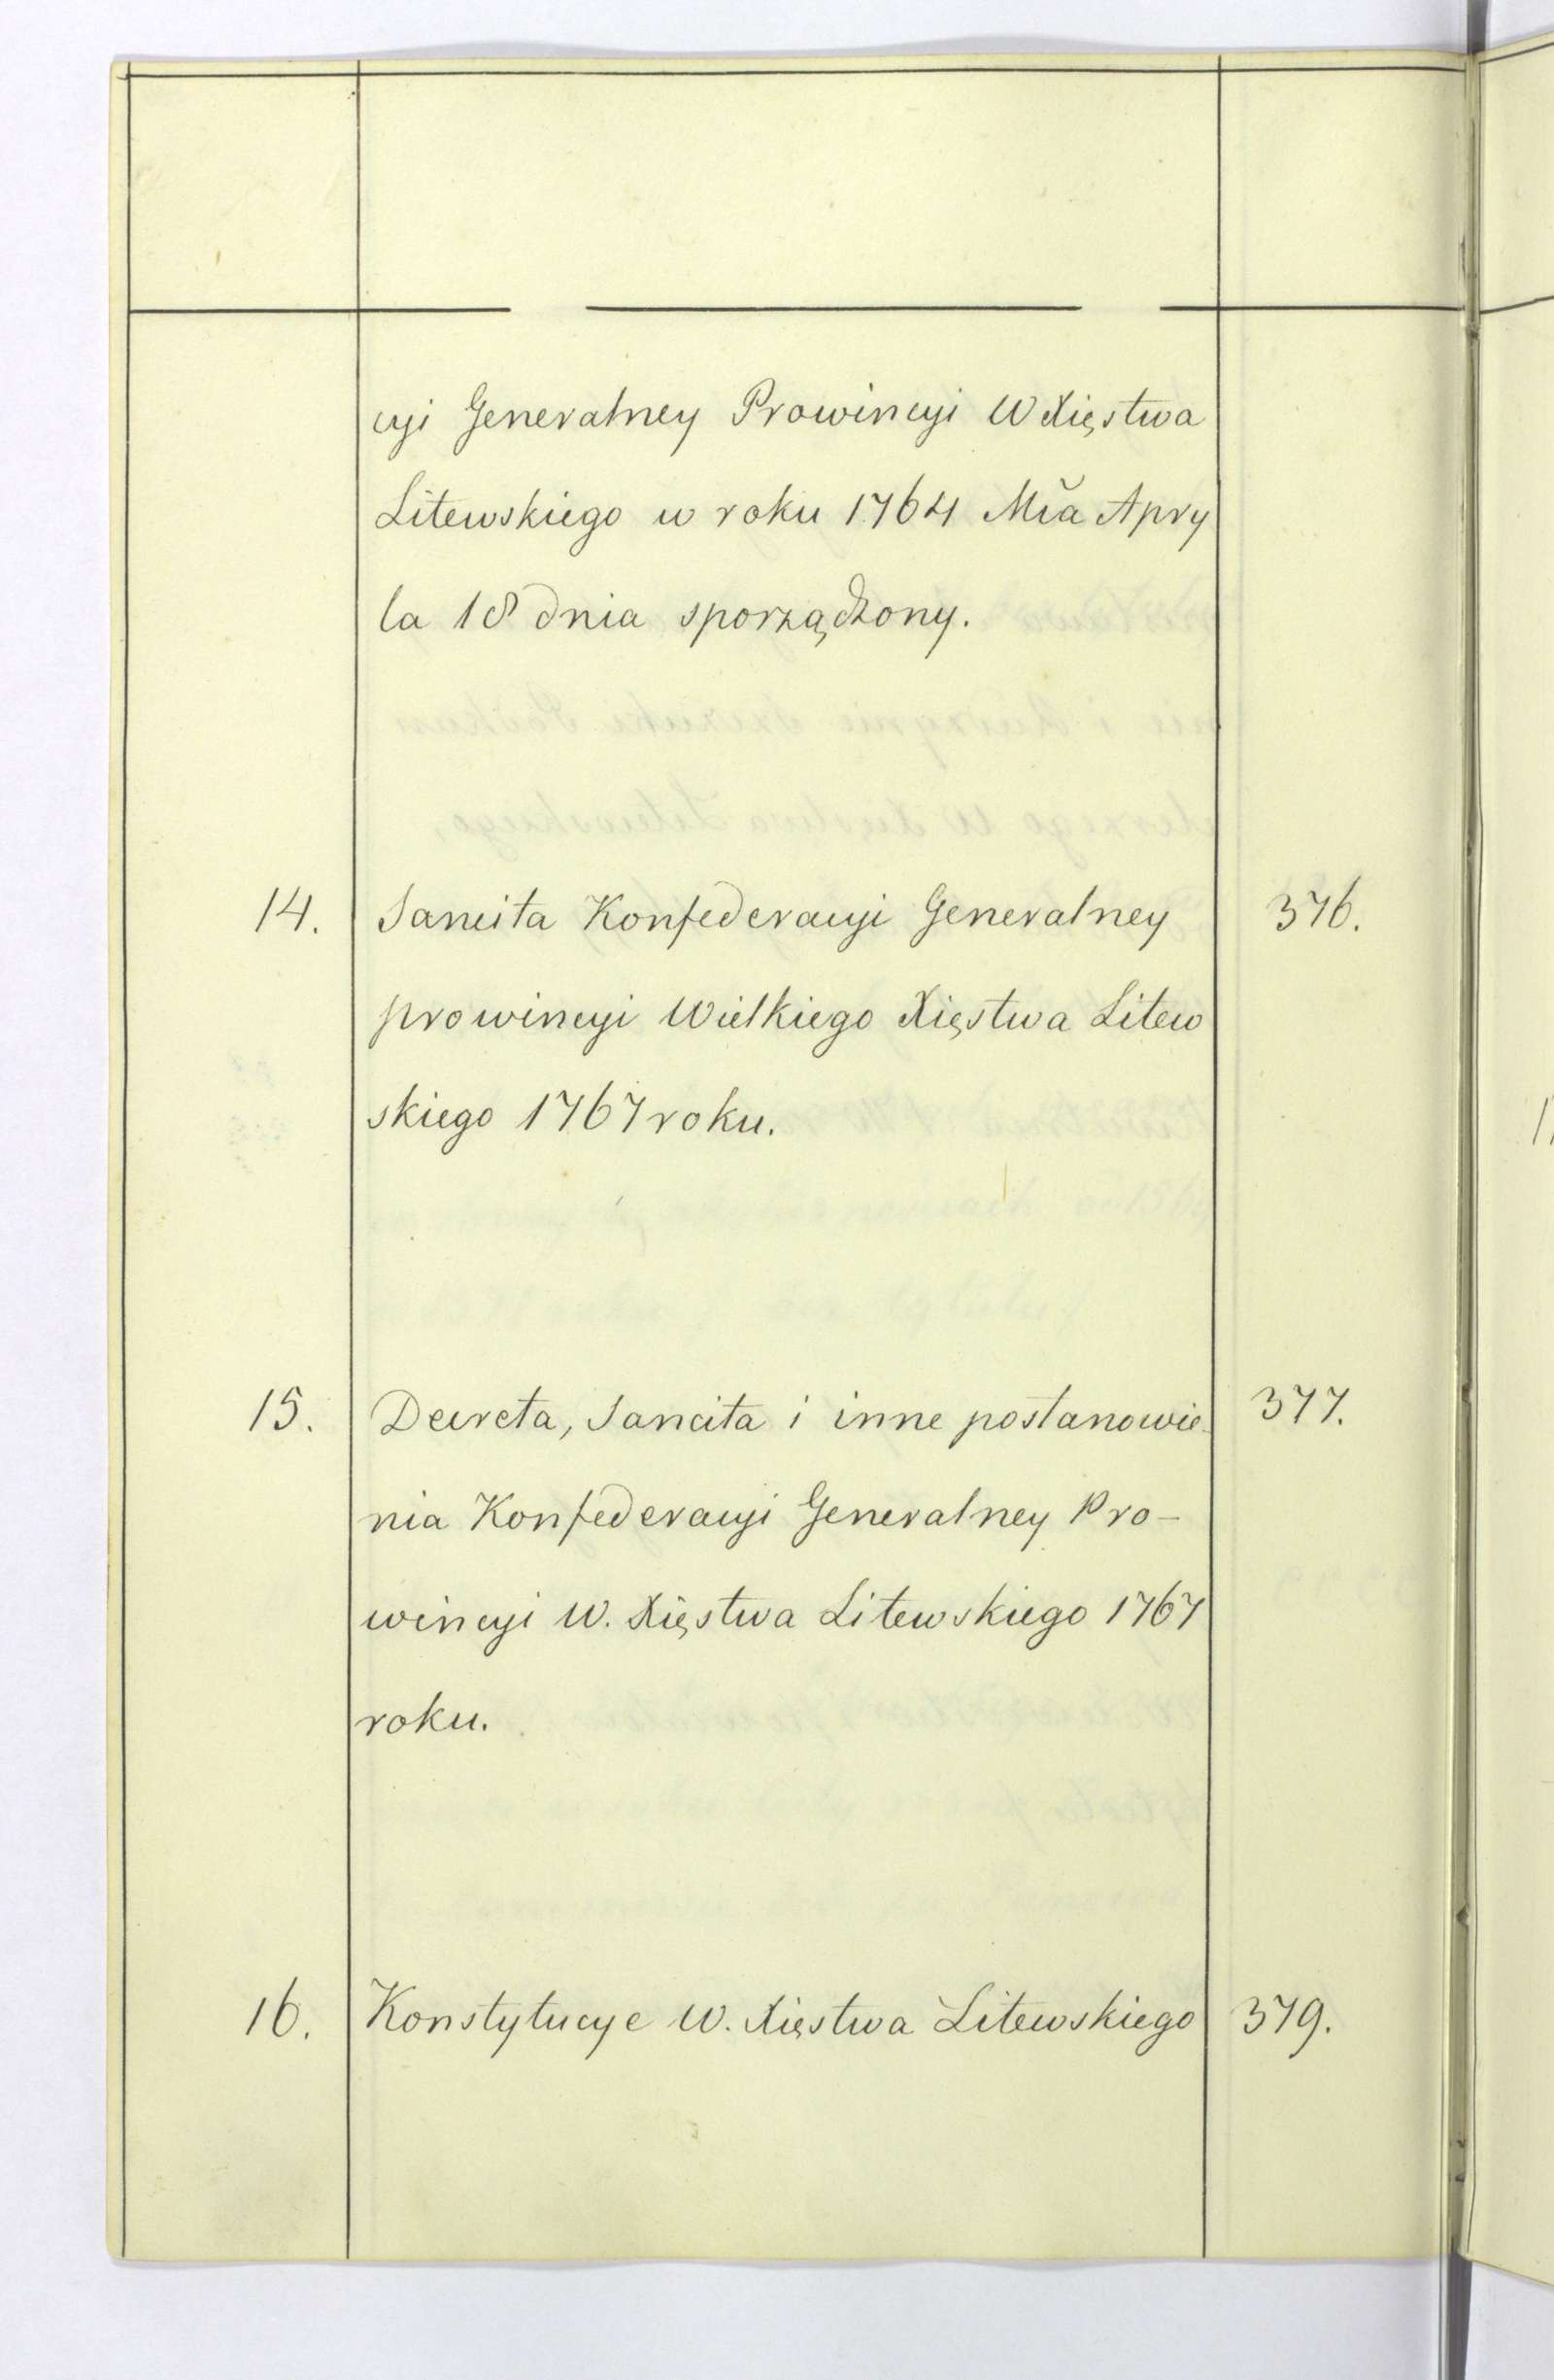 cyi Generalney Prowincyi W Xięstwa
Litewskiego w roku 1764 Mča Apry
la 18 dnia sporządzony.
14. Sancita Konfederacyi Generalney 376.
prowincyi Wielkiego Xięstwa Litew
skiego 1767 roku.
15. Decreta, Sancita i inne postanowie- 377.
nia Konfederacyi Generalney Pro-
wincyi W. Xięstwa Litewskiego 1767
roku.
16. Konstytucye W. Xięstwa Litewskiego 379.